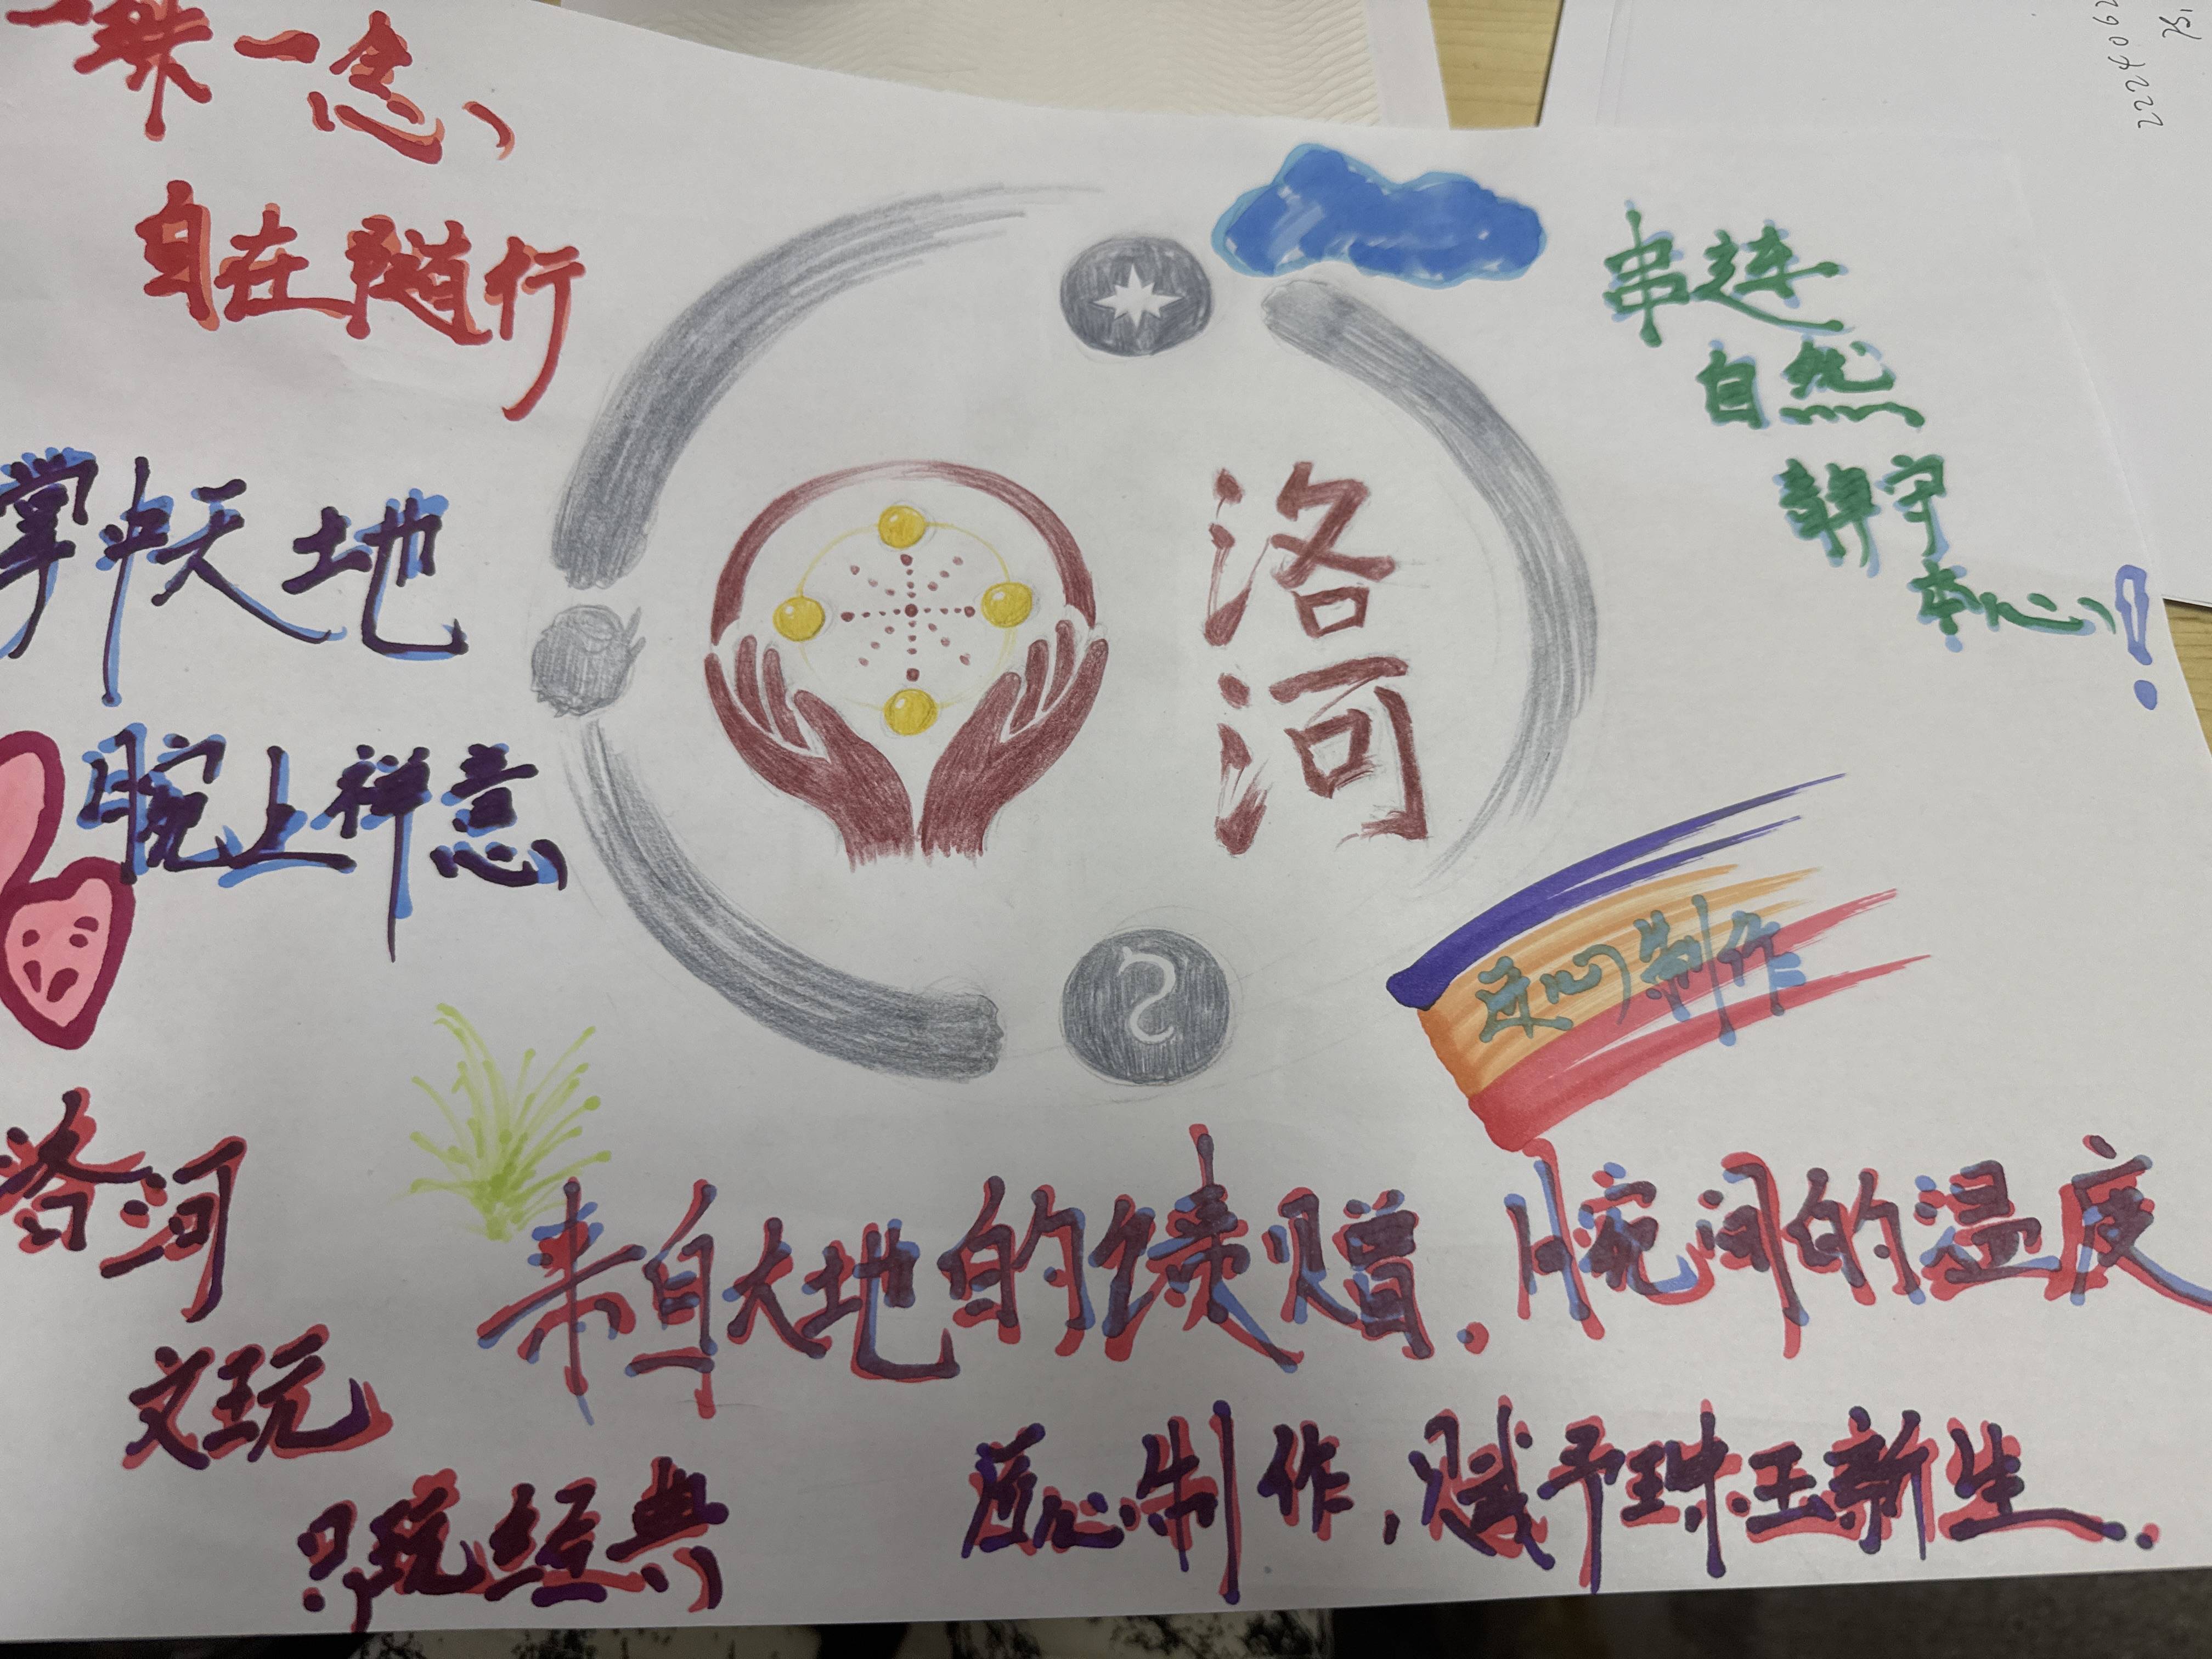 一珠一念、
自在随行
掌中天地
腕上祥意
洛河
串连
自然
静守
本心!
匠心制作
洛河
文玩
玩经典
来自大地的馈赠.腕间的温度
匠心制作,赋予珠玉新生.